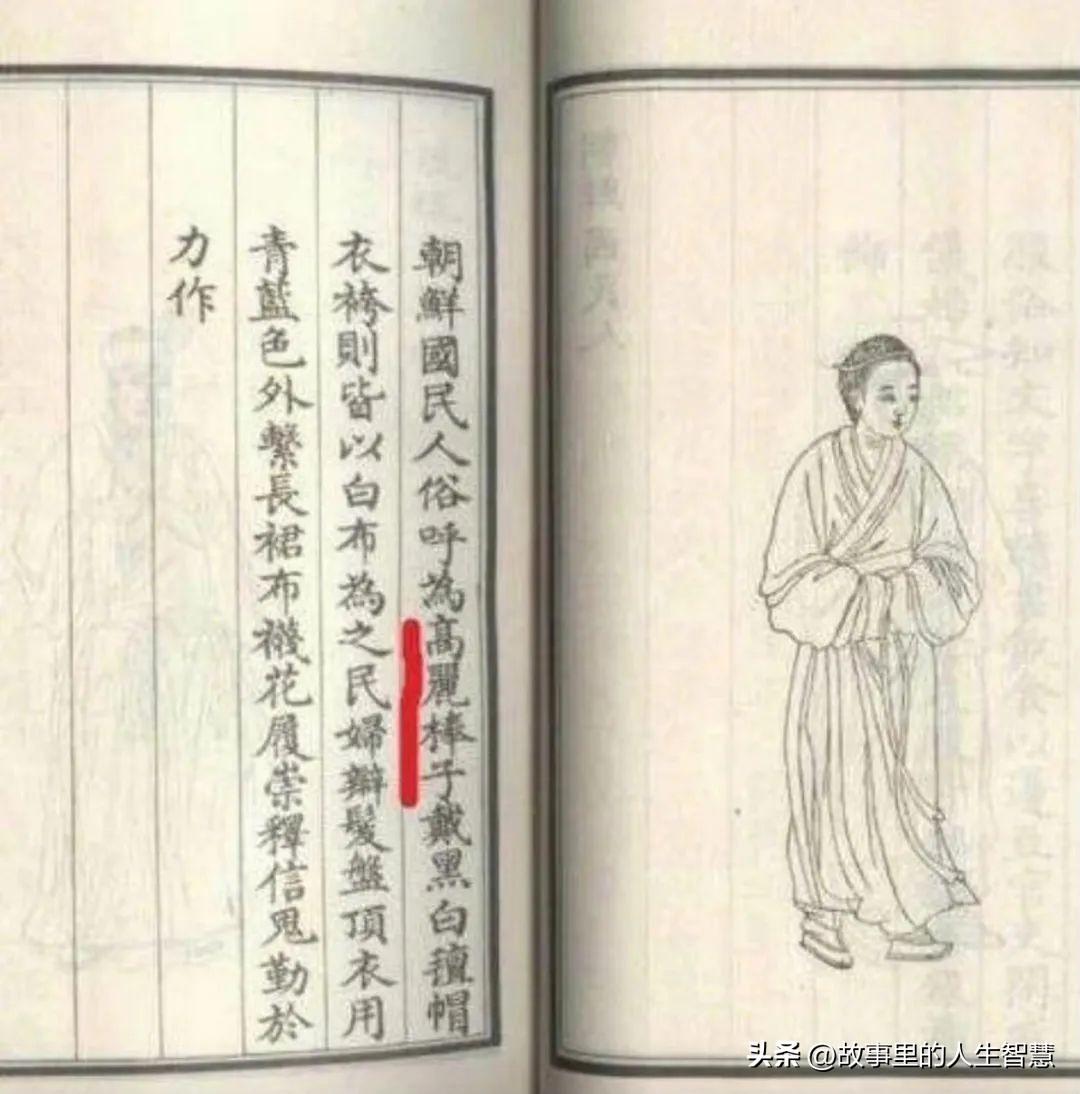 朝鮮國民人俗呼為高麗棒子戴黑白氊帽
衣袴則皆以白布為之民婦辮髮盤頂衣用
青藍色外繫長裙布襪花履崇釋信鬼勤於
力作
头条 @故事里的人生智慧